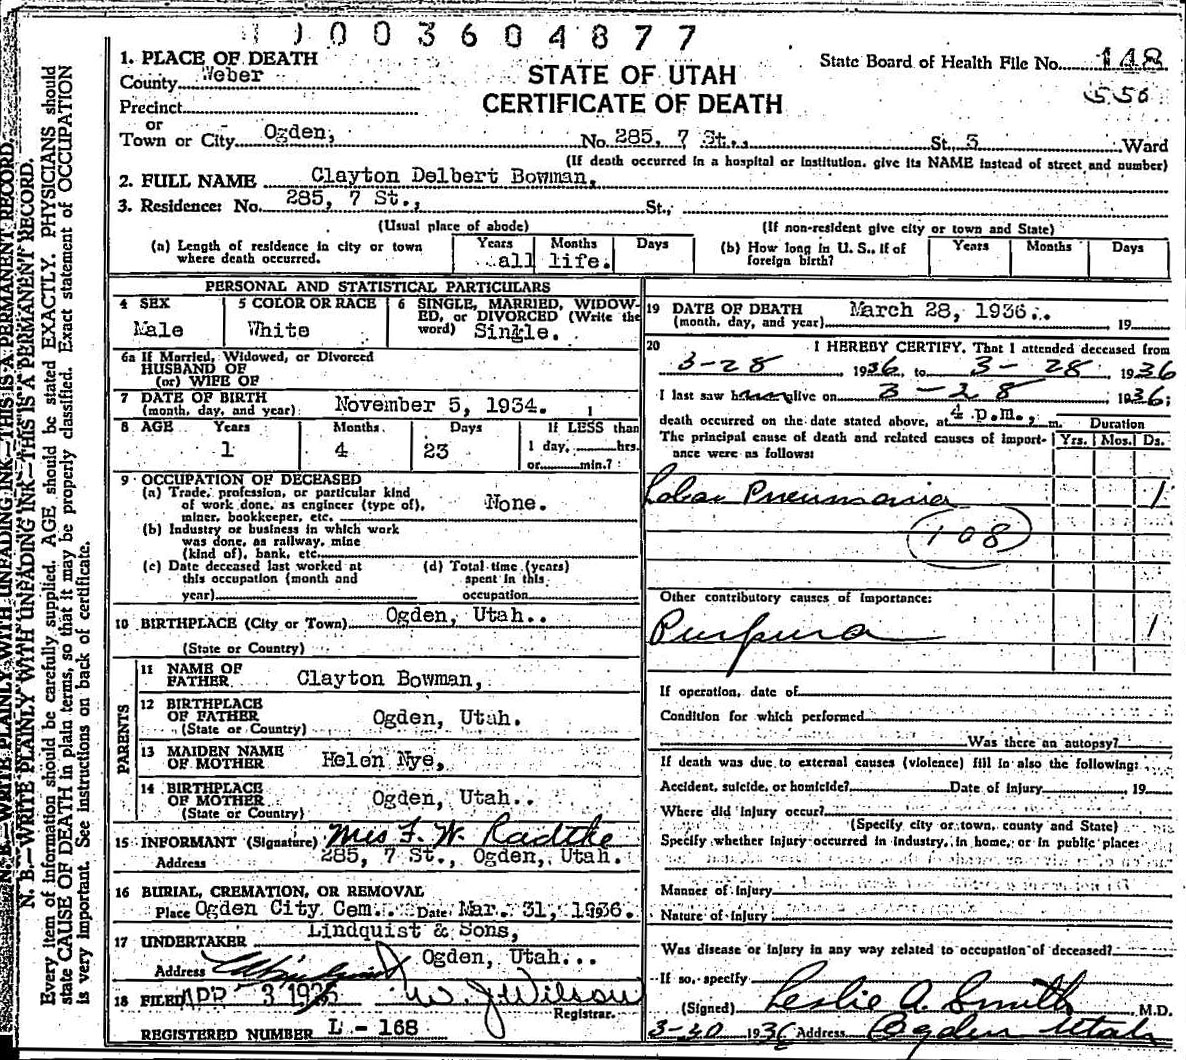 1003604877
1. PLACE OF DEATH
County Weber
Precinct
or
Town or City Ogden,
STATE OF UTAH
CERTIFICATE OF DEATH
State Board of Health File No. 148
556
No. 285, 7 St., St., 5 Ward
(If death occurred in a hospital or institution, give its NAME instead of street and number)
2. FULL NAME Clayton Delbert Bowman,
3. Residence: No. 285, 7 St., St.,
(Usual place of abode) (If non-resident give city or town and State)
(a) Length of residence in city or town
where death occurred.
Years Months Days
all life.
(b) How long in U. S., if of
foreign birth?
Years Months Days
PERSONAL AND STATISTICAL PARTICULARS
4 SEX
Male
5 COLOR OR RACE
White
6 SINGLE, MARRIED, WIDOW-
ED, or DIVORCED (Write the
word) Single.
6a If Married, Widowed, or Divorced
HUSBAND OF
(or) WIFE OF
7 DATE OF BIRTH
(month, day, and year) November 5, 1934.
8 AGE Years Months Days If LESS than
1 4 23 1 day, hrs.
or min.?
9 OCCUPATION OF DECEASED
(a) Trade, profession, or particular kind
of work done, as engineer (type of),
miner, bookkeeper, etc. None.
(b) Industry or business in which work
was done, as railway, mine
(kind of), bank, etc.
(c) Date deceased last worked at
this occupation (month and
year)
(d) Total time (years)
spent in this
occupation
10 BIRTHPLACE (City or Town) Ogden, Utah..
(State or Country)
PARENTS
11 NAME OF
FATHER Clayton Bowman,
12 BIRTHPLACE
OF FATHER Ogden, Utah.
(State or Country)
13 MAIDEN NAME
OF MOTHER Helen Nye,
14 BIRTHPLACE
OF MOTHER Ogden, Utah..
(State or Country)
15 INFORMANT (Signature) Mrs F. W. Radtke
Address 285, 7 St., Ogden, Utah.
16 BURIAL, CREMATION, OR REMOVAL
Place Ogden City Cem. Date Mar. 31, 1936.
17 UNDERTAKER Lindquist & Sons,
Address Ogden, Utah...
18 FILED APR 3 1936 W. J. Wilson
Registrar.
REGISTERED NUMBER L - 168
19 DATE OF DEATH
(month, day, and year) March 28, 1936.. 19
20 I HEREBY CERTIFY, That I attended deceased from
3-28 1936, to 3-28, 1936
I last saw him alive on 3-28 1936;
death occurred on the date stated above, at 4 p.m., m.
The principal cause of death and related causes of import-
ance were as follows:
Duration
Yrs. Mos. Ds.
Lobar Pneumonia 1
108
Other contributory causes of importance:
Purpura 1
If operation, date of
Condition for which performed
Was there an autopsy?
If death was due to external causes (violence) fill in also the following:
Accident, suicide, or homicide? Date of Injury 19
Where did injury occur?
(Specify city or town, county and State)
Specify whether injury occurred in industry, in home, or in public place:
Manner of Injury
Nature of Injury
Was disease or injury in any way related to occupation of deceased?
If so, specify
(Signed) Leslie A. Smith M.D.
3-30 1936 Address Ogden Utah
N. B.—WRITE PLAINLY WITH UNFADING INK—THIS IS A PERMANENT RECORD.
N. B.—WRITE PLAINLY WITH UNFADING INK—THIS IS A PERMANENT RECORD.
Every item of information should be carefully supplied. AGE should be stated EXACTLY. PHYSICIANS should
state CAUSE OF DEATH in plain terms, so that it may be properly classified. Exact statement of OCCUPATION
is very important. See instructions on back of certificate.